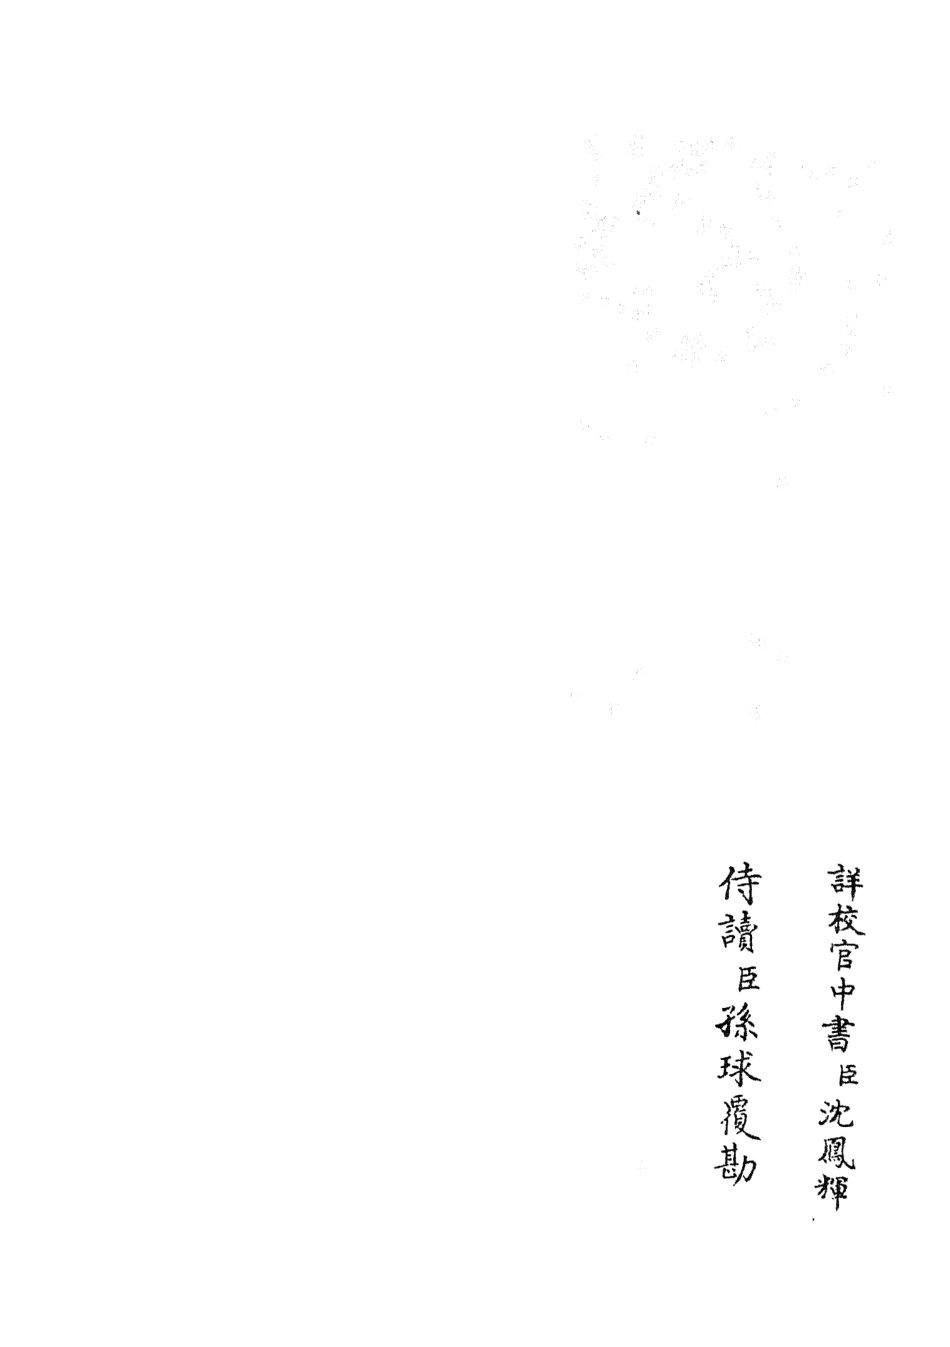 詳校官中書臣沈鳳輝
侍讀臣孫球覆勘